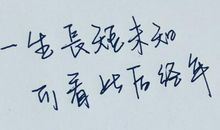 一生長短未知
可看此后经年